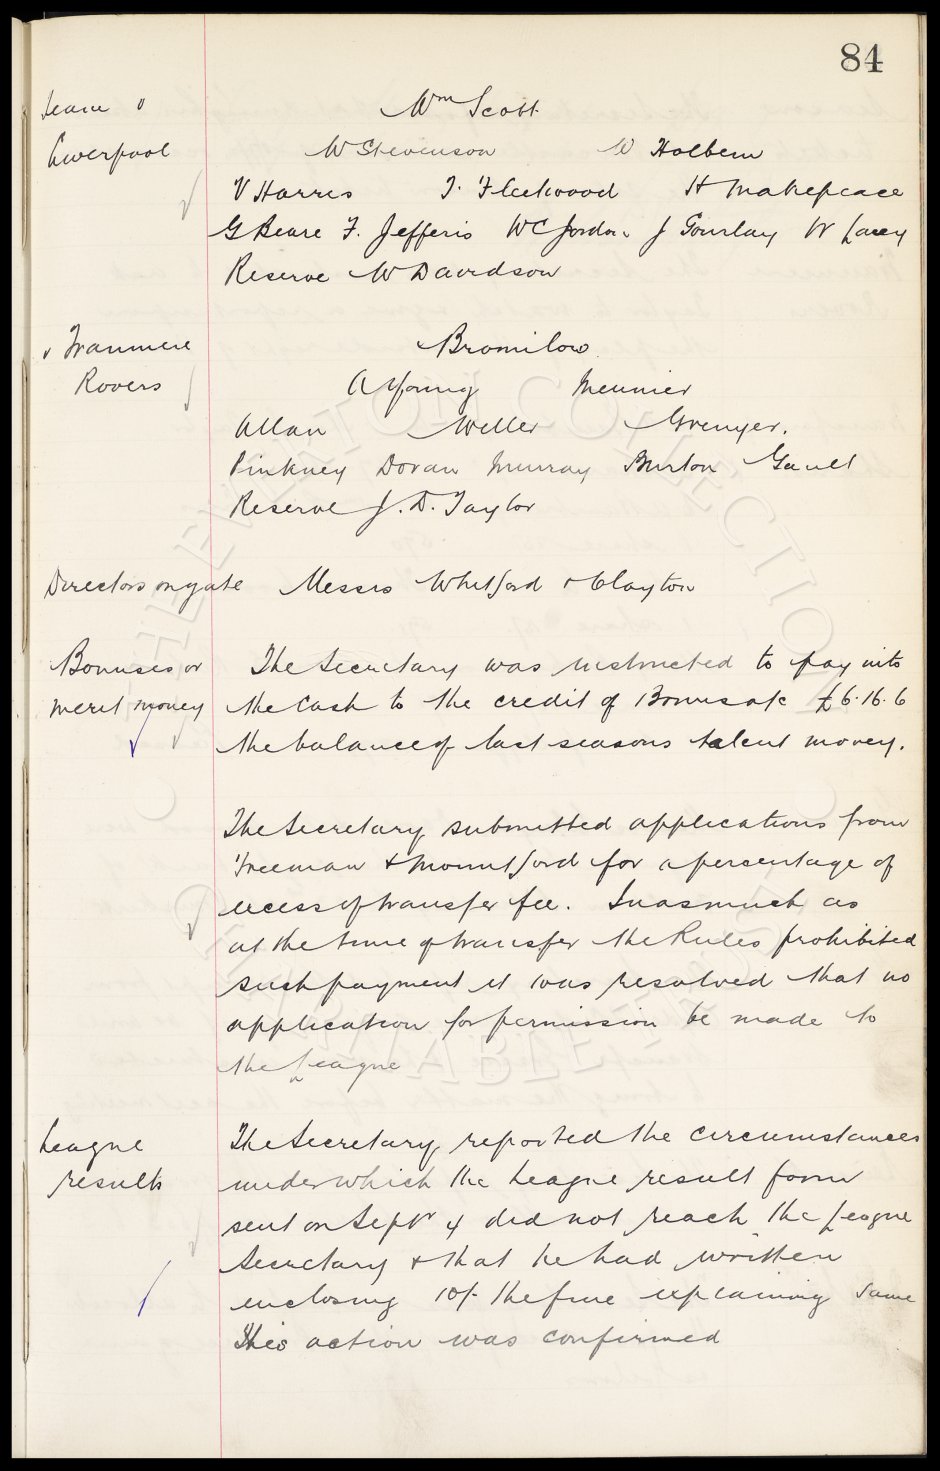 84
Team v
Liverpool
Wm Scott
W Stevenson W Holbem
V Harris T. Fleetwood H Makepeace
G Beare F. Jefferis W C Jordan J Gourlay W Lacey
Reserve W Davidson
v Tranmere
Rovers
Bromilow
A Young Meunier
Allan Weller Grenyer.
Pinkney Doran Murray Burton Gault
Reserve J. D. Taylor
Directors on gate Messrs Whitford & Clayton
Bonuses or
merit money
The Secretary was instructed to pay into
the Cash to the credit of Bonus a/c £6.16.6
the balance of last seasons talent money.
The Secretary submitted applications from
Freeman & Mountford for a percentage of
excess of transfer fee. Inasmuch as
at the time of transfer the Rules prohibited
such payment it was resolved that no
application for permission be made to
the League
League
results
The Secretary reported the circumstances
under which the League result form
sent on Septr 4 did not reach the League
Secretary & that he had written
enclosing 10/- the fine explaining same
This action was confirmed